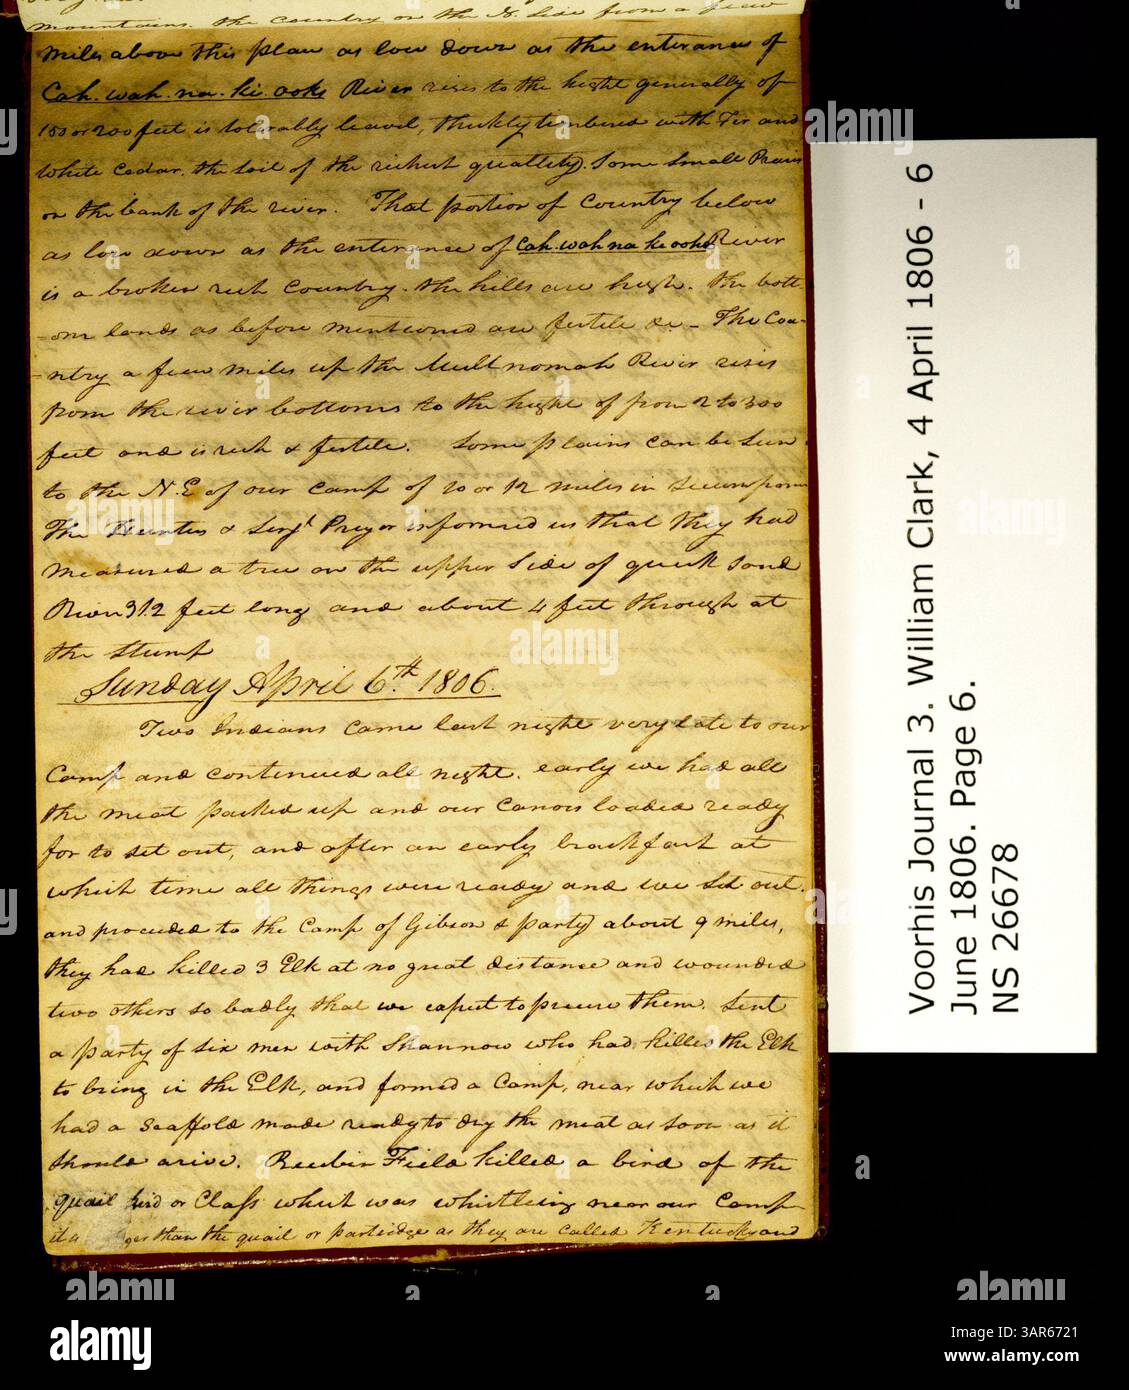 mountains. the Country on the N. Side from a fiew
miles above this place as low down as the enterance of
Cah-wah-na-ki-ooks River rises to the hight generally of
150 or 200 feet is tolerably leavel, thickly timbered with Fir and
white Cedar. the soil of the richest quallity. Some small Prairis
on the bank of the river. That portion of Country below
as low down as the enterance of Cah-wah na ki ooks River
is a broken rich Country. the hills are high. the bott-
-om lands as before mentioned are fertile &c.- The Cou-
-ntry a fiew miles up the Multnomah River rises
from the river bottoms to the hight of from 2 to 300
feet and is rich & fertile. Some plains can be Seen
to the N.E of our Camp of 10 or 12 miles in
The Hunters & Serjt. Pryor informed us that they had
Measured a tree on the upper Side of quick Sand
River 312 feet long and about 4 feet through at
the stump
Sunday April 6th. 1806.
Two Indians came last night very late to our
Camp and continued all night. early we had all
the meat packed up and our Canoes loaded ready
for to set out, and after an early brackfast at
which time all things were ready and we Set out.
and proceeded to the Camp of Gibson & party about 9 miles,
they had killed 3 Elk at no great distance and wounded
two others so badly that we expect to precure them. Sent
a party of six men with Shannow who had killed the Elk
to bring in the Elk, and formed a Camp, near which we
had a scaffold made ready to dry the meat as soon as it
should arive. Reubin Field killed a bird of the
quail kind or Class which was whistleing near our Camp
it is ger than the quail or partridge as they are called Kentucky and
Voorhis Journal 3. William Clark, 4 April 1806 - 6
June 1806. Page 6.
NS 26678
alamy
Image ID: 3AR6721
www.alamy.com